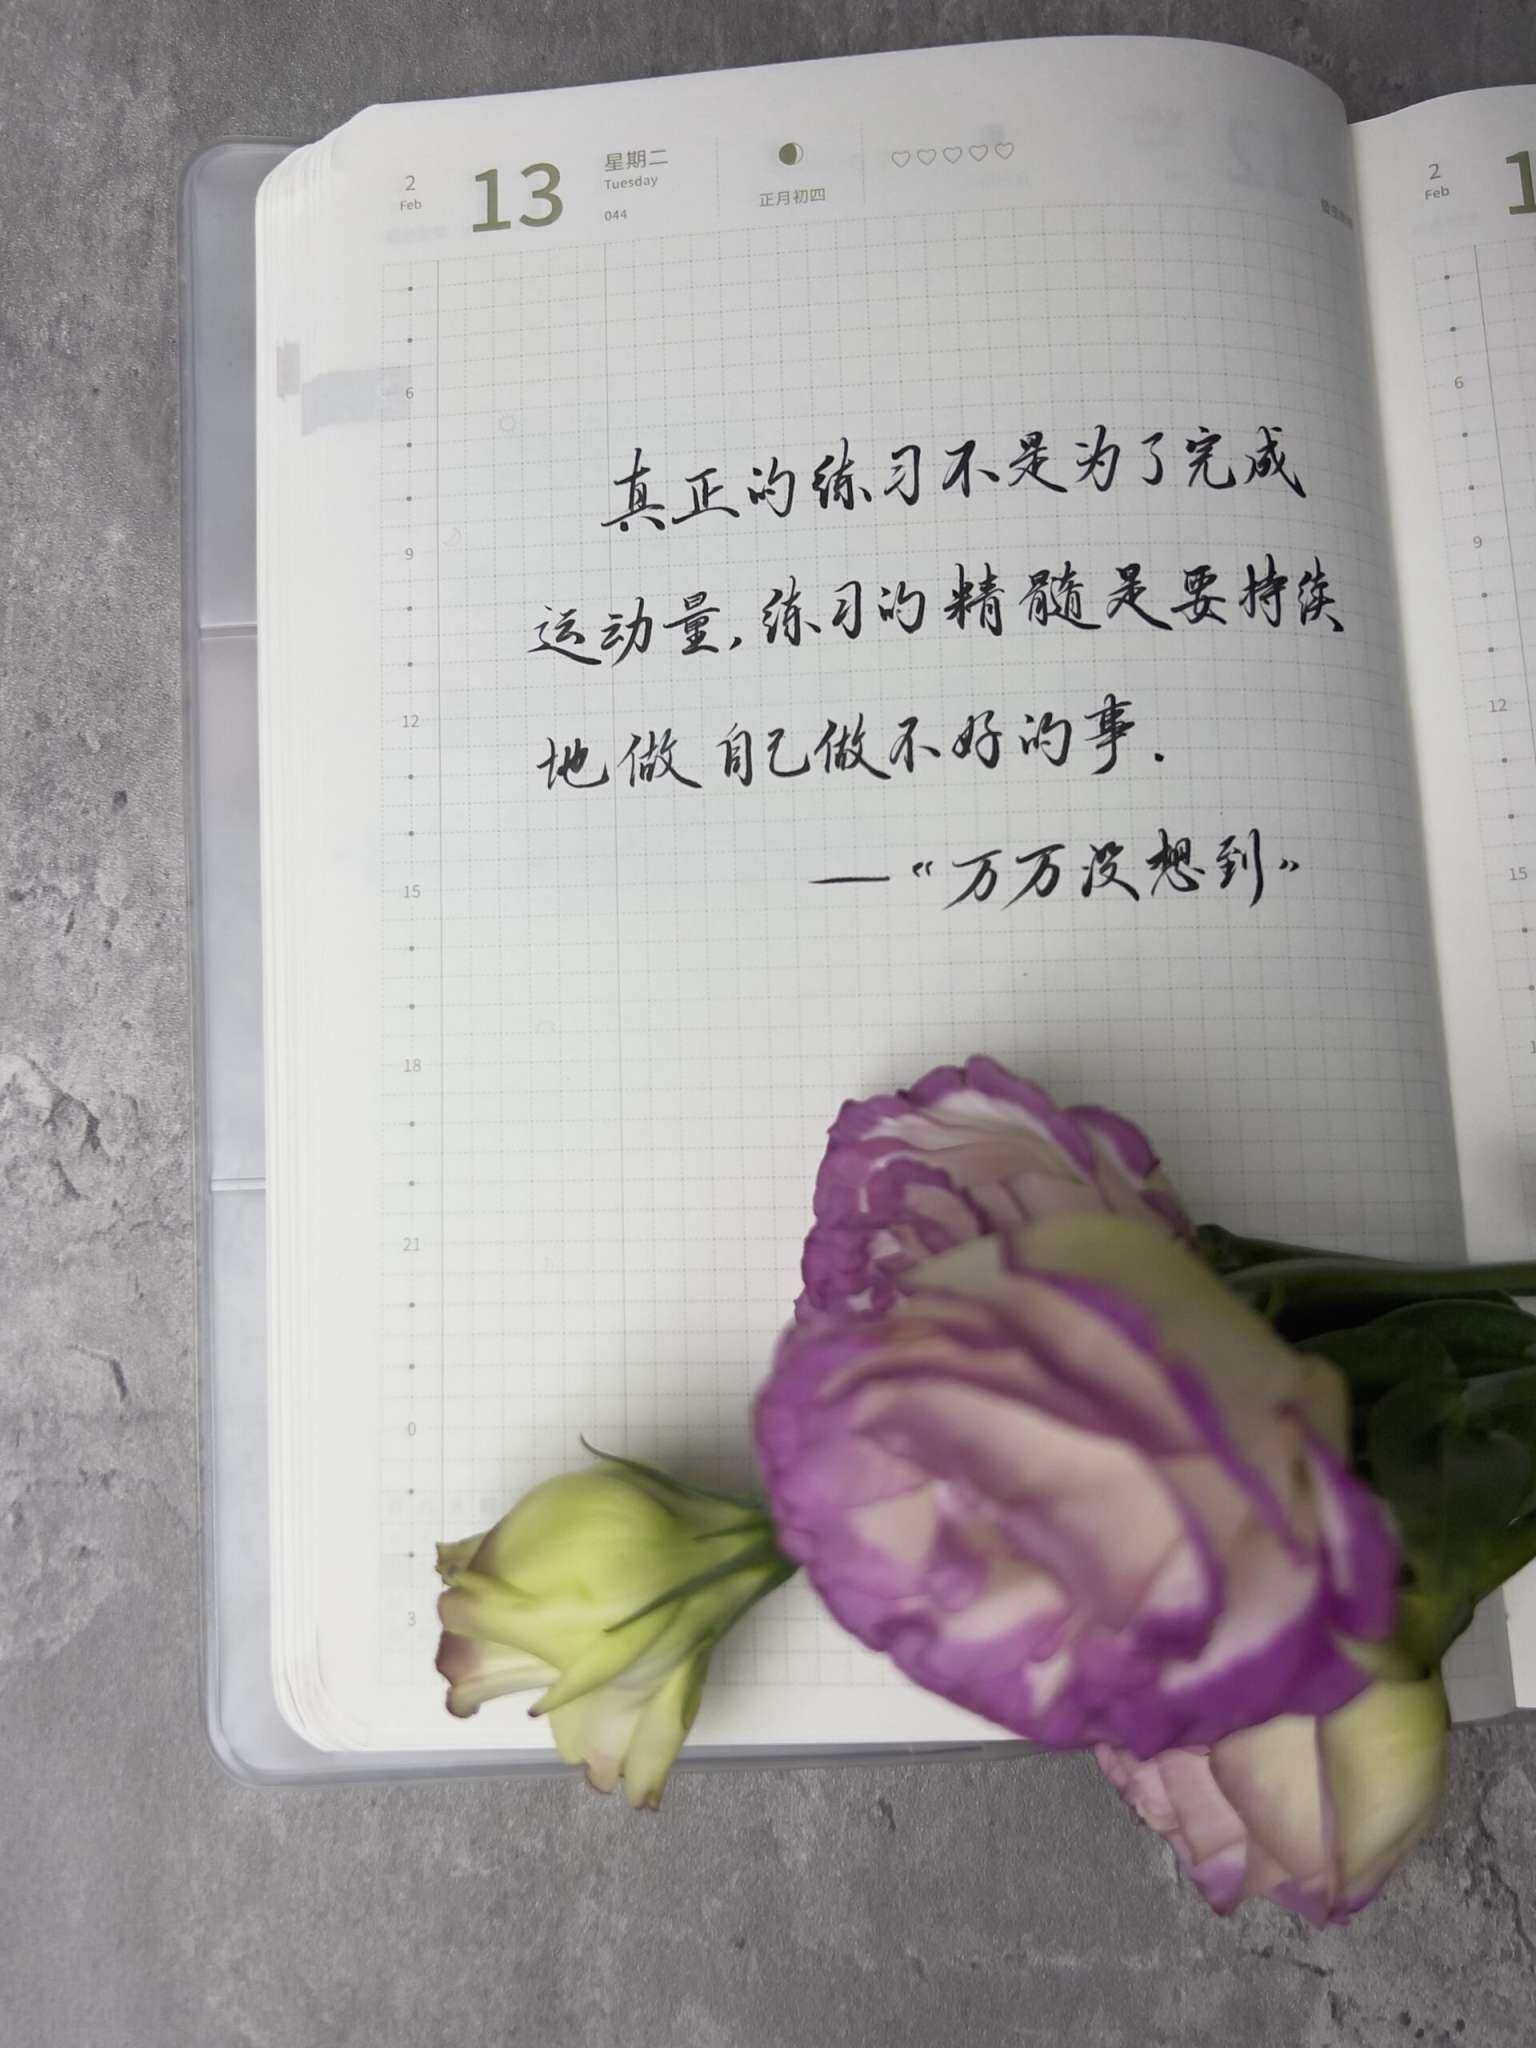 2
Feb
13
星期二
Tuesday
044
正月初四
真正的练习不是为了完成
运动量,练习的精髓是要持续
地做自己做不好的事.
—“万万没想到”
6
9
12
15
18
21
0
3
2
Feb
1
6
9
12
15